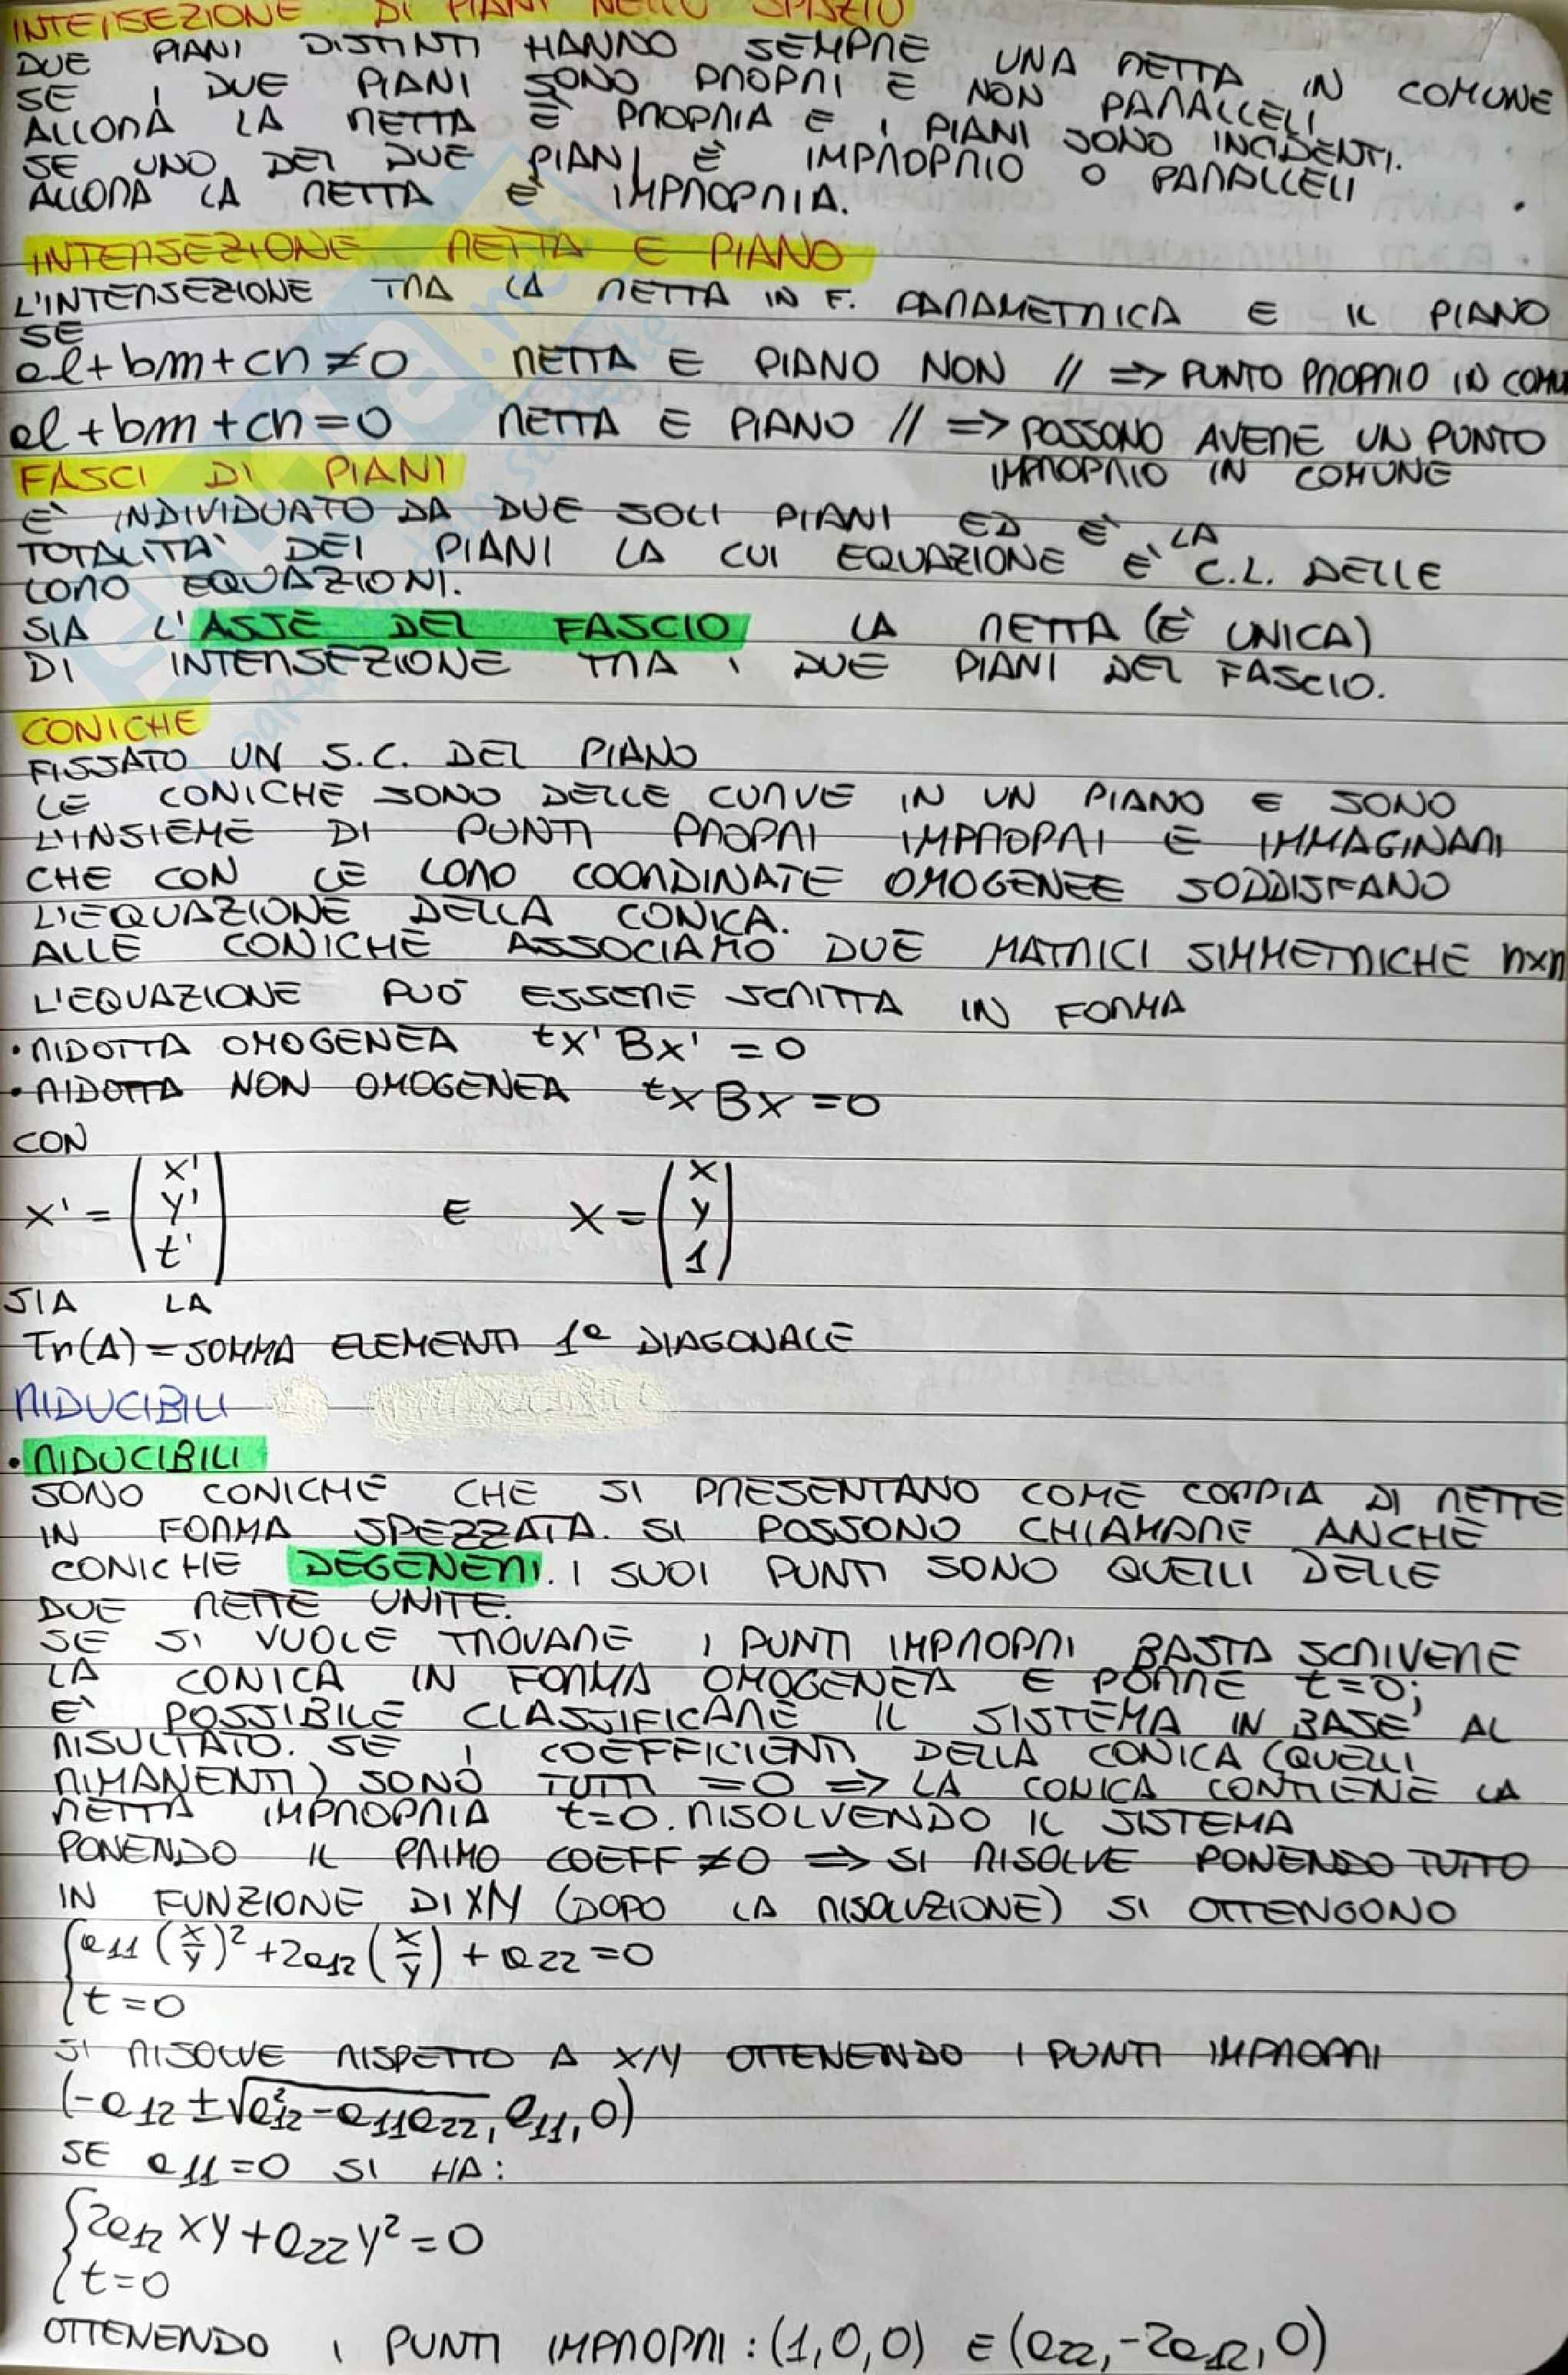 INTERSEZIONE DI PIANI NELLO SPAZIO
DUE PIANI DISTINTI HANNO SEMPRE UNA RETTA IN COMUNE
SE I DUE PIANI SONO PROPRI E NON PARALLELI
ALLORA LA RETTA È PROPRIA E I PIANI SONO INCIDENTI.
SE UNO DEI DUE PIANI È IMPROPRIO O PARALLELI
ALLORA LA RETTA È IMPROPRIA.
INTERSEZIONE RETTA E PIANO
L'INTERSEZIONE TRA LA RETTA IN F. PARAMETRICA E IL PIANO
SE
al+bm+cn≠0 RETTA E PIANO NON // => PUNTO PROPRIO IN COMU
al+bm+cn=0 RETTA E PIANO // => POSSONO AVERE UN PUNTO
IMPROPRIO IN COMUNE
FASCI DI PIANI
È INDIVIDUATO DA DUE SOLI PIANI ED È LA
TOTALITA' DEI PIANI LA CUI EQUAZIONE È C.L. DELLE
LORO EQUAZIONI.
SIA L'ASSE DEL FASCIO LA RETTA (È UNICA)
DI INTERSEZIONE TRA I DUE PIANI DEL FASCIO.
CONICHE
FISSATO UN S.C. DEL PIANO
LE CONICHE SONO DELLE CURVE IN UN PIANO E SONO
L'INSIEME DI PUNTI PROPRI IMPROPRI E IMMAGINARI
CHE CON LE LORO COORDINATE OMOGENEE SODDISFANO
L'EQUAZIONE DELLA CONICA.
ALLE CONICHE ASSOCIAMO DUE MATRICI SIMMETRICHE nxn
L'EQUAZIONE PUÒ ESSERE SCRITTA IN FORMA
• RIDOTTA OMOGENEA ᵗX'BX' = 0
• RIDOTTA NON OMOGENEA ᵗXBX = 0
CON
X' = (x' y' t') E X = (x y 1)
SIA LA
Tr(A) = SOMMA ELEMENTI 1ª DIAGONALE
RIDUCIBILI
• RIDUCIBILI
SONO CONICHE CHE SI PRESENTANO COME COPPIA DI RETTE
IN FORMA SPEZZATA. SI POSSONO CHIAMARE ANCHE
CONICHE DEGENERI. I SUOI PUNTI SONO QUELLI DELLE
DUE RETTE UNITE.
SE SI VUOLE TROVARE I PUNTI IMPROPRI BASTA SCRIVERE
LA CONICA IN FORMA OMOGENEA E PORRE t=0;
È POSSIBILE CLASSIFICARE IL SISTEMA IN BASE AL
RISULTATO. SE I COEFFICIENTI DELLA CONICA (QUELLI
RIMANENTI) SONO TUTTI =0 => LA CONICA CONTIENE LA
RETTA IMPROPRIA t=0. RISOLVENDO IL SISTEMA
PONENDO IL PRIMO COEFF ≠0 => SI RISOLVE PONENDO TUTTO
IN FUNZIONE DI X/Y (DOPO LA RISOLUZIONE) SI OTTENGONO
{a11 (x/y)² + 2a12 (x/y) + a22 = 0
{t = 0
SI RISOLVE RISPETTO A X/Y OTTENENDO I PUNTI IMPROPRI
(-a12 ± √a²12 - a11a22, a11, 0)
SE a11=0 SI HA:
{2a12 XY + a22 Y² = 0
{t=0
OTTENENDO I PUNTI IMPROPRI: (1,0,0) E (a22, -2a12, 0)